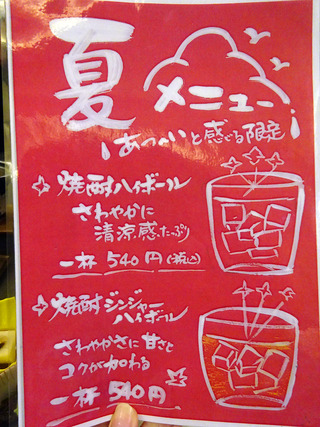 夏
メニュー
あつーいと感じる限定
焼酎ハイボール
さわやかに
清涼感たっぷり
一杯 540円(税込)
焼酎ジンジャー
ハイボール
さわやかさに甘さと
コクが加わる
一杯 540円